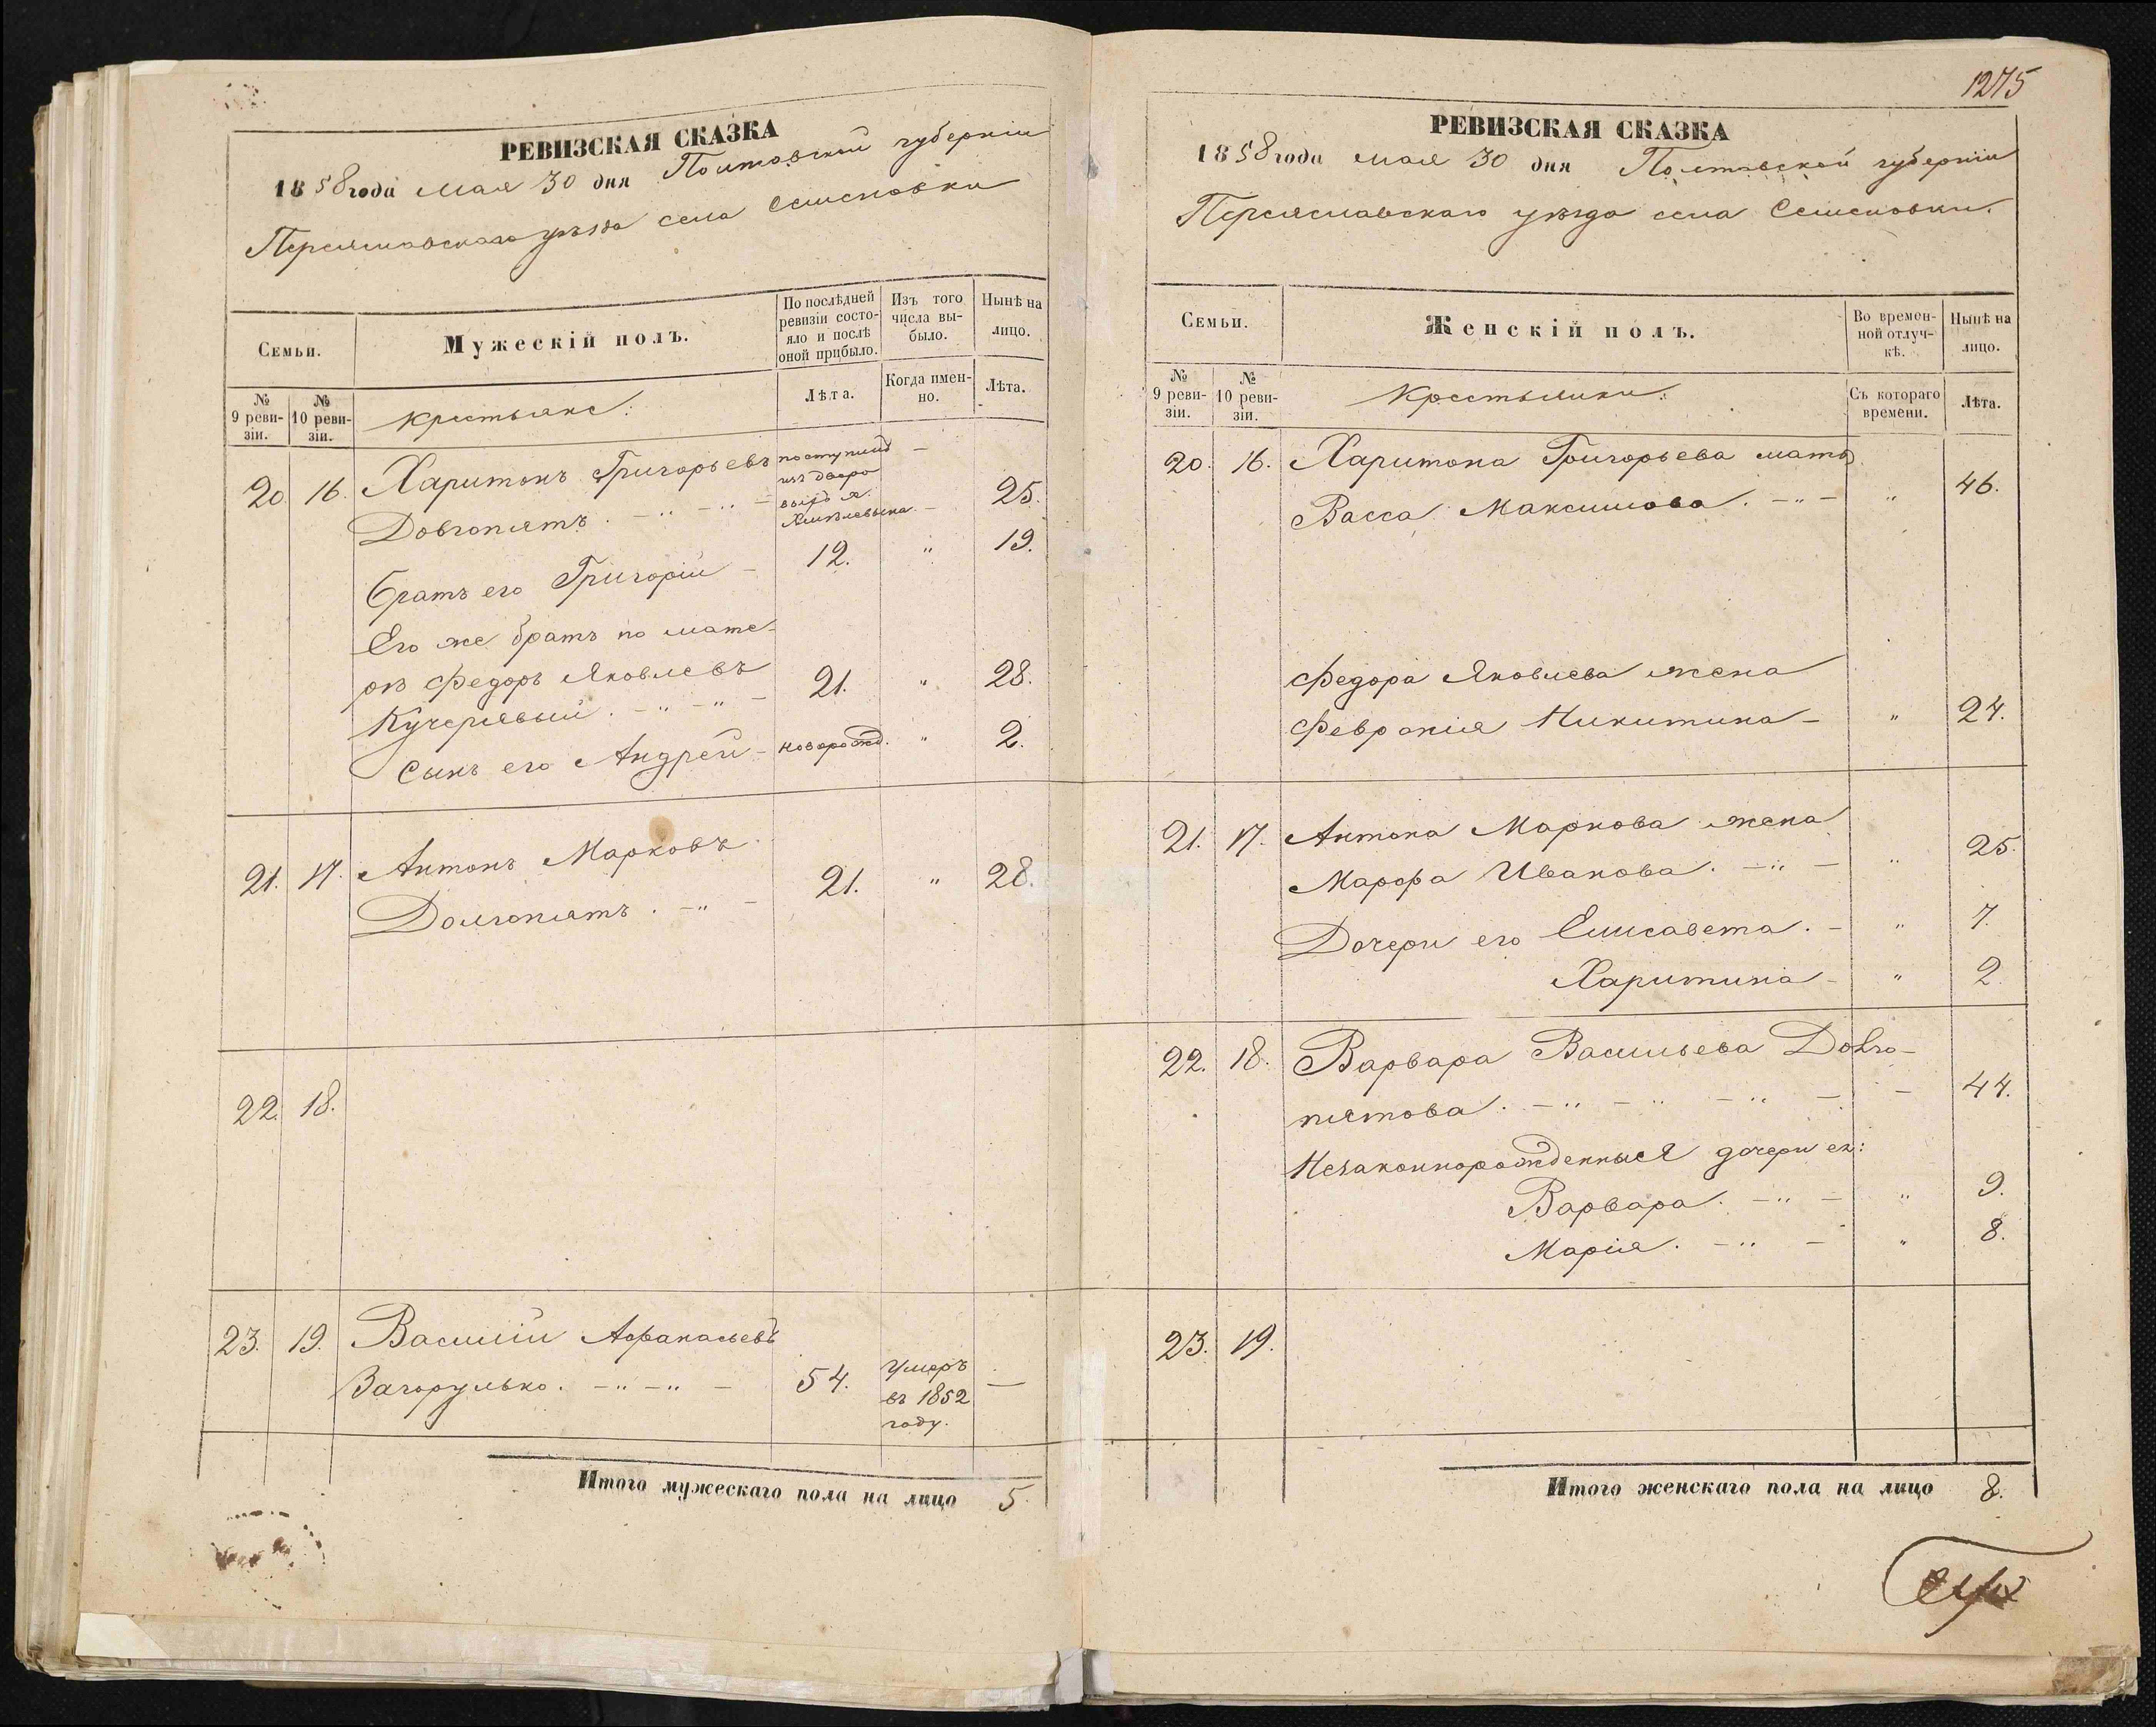 РЕВИЗСКАЯ СКАЗКА
1858 года мая 30 дня Полтавской губерніи
Переяславскаго уѣзда села Семеновки
Семьи.
Мужескій полъ.
По послѣдней ревизіи состояло и послѣ оной прибыло.
Изъ того числа выбыло.
Нынѣ на лицо.
№ 9 ревизіи.
№ 10 ревизіи.
Крестьяне:
Лѣта.
Когда именно.
Лѣта.
20. 16. Харитонъ Григорьевъ поступилъ –
изъ дворо
Довгопятъ. – " – " – 25.
Братъ его Григорій – 12. " 19.
Его же братъ по мате-
рѣ Федоръ Яковлевъ
Кучерявый. – " – " – 21. " 28.
Сынъ его Андрей – новорожд. " 2.
21. 17. Антонъ Марковъ
Долгопятъ. – " – 21. " 28.
22. 18.
23. 19. Василій Афанасьевъ
Загорулько. – " – " – 54. умеръ –
въ 1852
году.
Итого мужескаго пола на лицо 5.
1275
РЕВИЗСКАЯ СКАЗКА
1858 года мая 30 дня Полтавской губерніи
Переяславскаго уѣзда села Семеновки.
Семьи.
Женскій полъ.
Во временной отлучкѣ.
Нынѣ на лицо.
№ 9 ревизіи.
№ 10 ревизіи.
Крестьянки:
Съ котораго времени.
Лѣта.
20. 16. Харитона Григорьева мать
Васса Максимова. – " – " 46.
Федора Яковлева жена
Февронія Никитина – " 24.
21. 17. Антона Маркова жена
Марфа Иванова. – " – " 25.
Дочери его Елисавета. – " 7.
Харитина – " 2.
22. 18. Варвара Васильева Довго-
пятова. – " – " – " – – 44.
Незаконнорожденныя дочери ея:
Варвара. – " – " 9.
Марія. – " – " 8.
23. 19.
Итого женскаго пола на лицо 8.